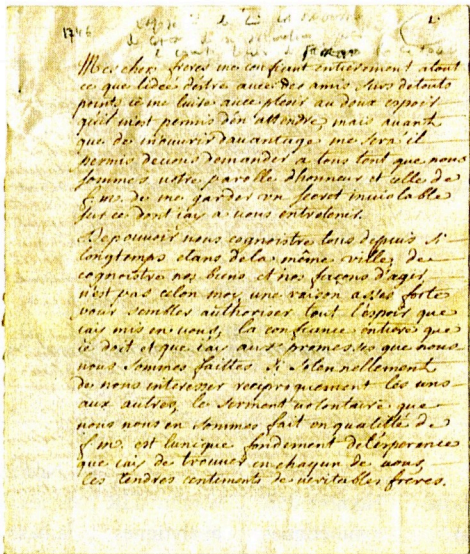 1746
Mes chers freres me confiant entierement atout
ce que lidée dêstre avec des amis surs detouts
points, ie me livre avec plesir au doux espoir
quil mest permis den attendre, mais avant
que de mouvrir davantage me sera il
permis devous demander a tous tant que nous
sommes votre parolle dhonneur et celle de
f. m. de me garder un secret inviolable
sur ce dont iay a vous entretenir.
De pouvoir nous cognoistre tous depuis si
longtemps etans dela même ville, de
cognoistre nos biens et nos façons dager
nest pas celon moy une raison asses forte
pour sembler authoriser tout lespoir que
iay mis en vous, la confiance entiere que
ie doit et que iay aux promesses que nous
nous sommes faittes si solennellement
de nous interesser reciproquement les uns
aux autres, le serment volontaire que
nous nous en sommes fait en qualitté de
f. m. est lunique fondement delésperence
que iay de trouver en chaqun de vous,
les tendres centiments de veritables freres.